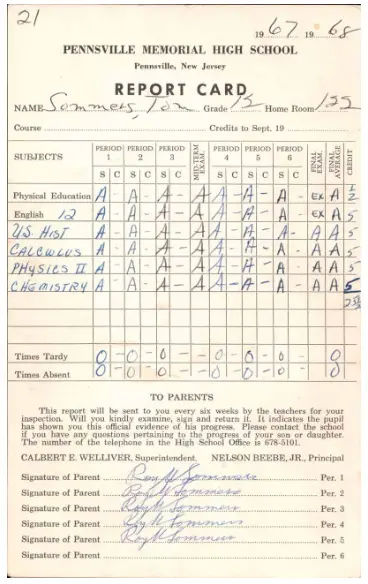 21
1967 1968
PENNSVILLE MEMORIAL HIGH SCHOOL
Pennsville, New Jersey
REPORT CARD
NAME Sommers, Tom Grade 12 Home Room 122
Course Credits to Sept. 19
SUBJECTS PERIOD 1 PERIOD 2 PERIOD 3 MID-TERM EXAM PERIOD 4 PERIOD 5 PERIOD 6 FINAL EXAM FINAL AVERAGE CREDIT
S C S C S C S C S C S C
Physical Education A - A - A - A A - A - A - EX A 1/2
English 12 A - A - A - A A - A - A - EX A 5
U.S. HIST A - A - A - A A - A - A - A A 5
CALCULUS A - A - A - A A - A - A - A A 5
PHYSICS II A - A - A - A A - A - A - A A 5
CHEMISTRY A - A - A - A A - A - A - A A 5
25 1/2
Times Tardy 0 - 0 - 0 - - 0 - 0 - 0 - 0
Times Absent 0 - 0 - 0 - - 0 - 0 - 0 - 0
TO PARENTS
This report will be sent to you every six weeks by the teachers for your
inspection. Will you kindly examine, sign and return it. It indicates the pupil
has shown you this official evidence of his progress. Please contact the school
if you have any questions pertaining to the progress of your son or daughter.
The number of the telephone in the High School Office is 678-5101.
CALBERT E. WELLIVER, Superintendent. NELSON BEEBE, JR., Principal
Signature of Parent Roy W Sommers Per. 1
Signature of Parent Roy W Sommers Per. 2
Signature of Parent Roy W Sommers Per. 3
Signature of Parent Roy W Sommers Per. 4
Signature of Parent Roy W Sommers Per. 5
Signature of Parent Per. 6